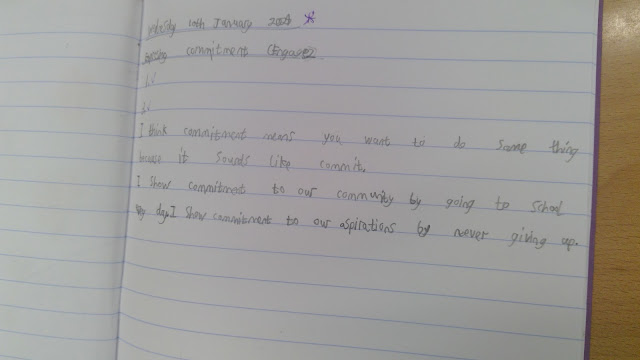 10th January
commitment
I think commitment means you want to do some thing
it sounds like commit.
I show commitment to our community by going to school
day. I show commitment to our aspirations by never giving up.